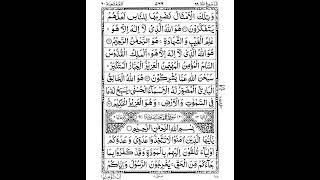 وَتِلْكَ الْاَمْثَالُ نَضْرِبُهَا لِلنَّاسِ لَعَلَّهُمْ
يَتَفَكَّرُوْنَ هُوَ اللّٰهُ الَّذِيْ لَا اِلٰهَ اِلَّا هُوَ
عٰلِمُ الْغَيْبِ وَالشَّهَادَةِ هُوَ الرَّحْمٰنُ الرَّحِيْمُ
هُوَ اللّٰهُ الَّذِيْ لَا اِلٰهَ اِلَّا هُوَ
السَّلٰمُ الْمُؤْمِنُ الْمُهَيْمِنُ الْعَزِيْزُ الْجَبَّارُ الْمُتَكَبِّرُ
سُبْحٰنَ اللّٰهِ عَمَّا يُشْرِكُوْنَ هُوَ اللّٰهُ الْخَالِقُ
الْبَارِئُ الْمُصَوِّرُ لَهُ الْاَسْمَآءُ الْحُسْنٰى يُسَبِّحُ لَهٗ مَا
فِي السَّمٰوٰتِ وَالْاَرْضِ وَهُوَ الْعَزِيْزُ الْحَكِيْمُ
بِسْمِ اللّٰهِ الرَّحْمٰنِ الرَّحِيْمِ
يٰٓاَيُّهَا الَّذِيْنَ اٰمَنُوْا لَا تَتَّخِذُوْا عَدُوِّيْ وَعَدُوَّكُمْ
اَوْلِيَآءَ تُلْقُوْنَ اِلَيْهِمْ بِالْمَوَدَّةِ وَقَدْ كَفَرُوْا بِمَا
جَآءَكُمْ مِّنَ الْحَقِّ يُخْرِجُوْنَ الرَّسُوْلَ وَاِيَّاكُمْ